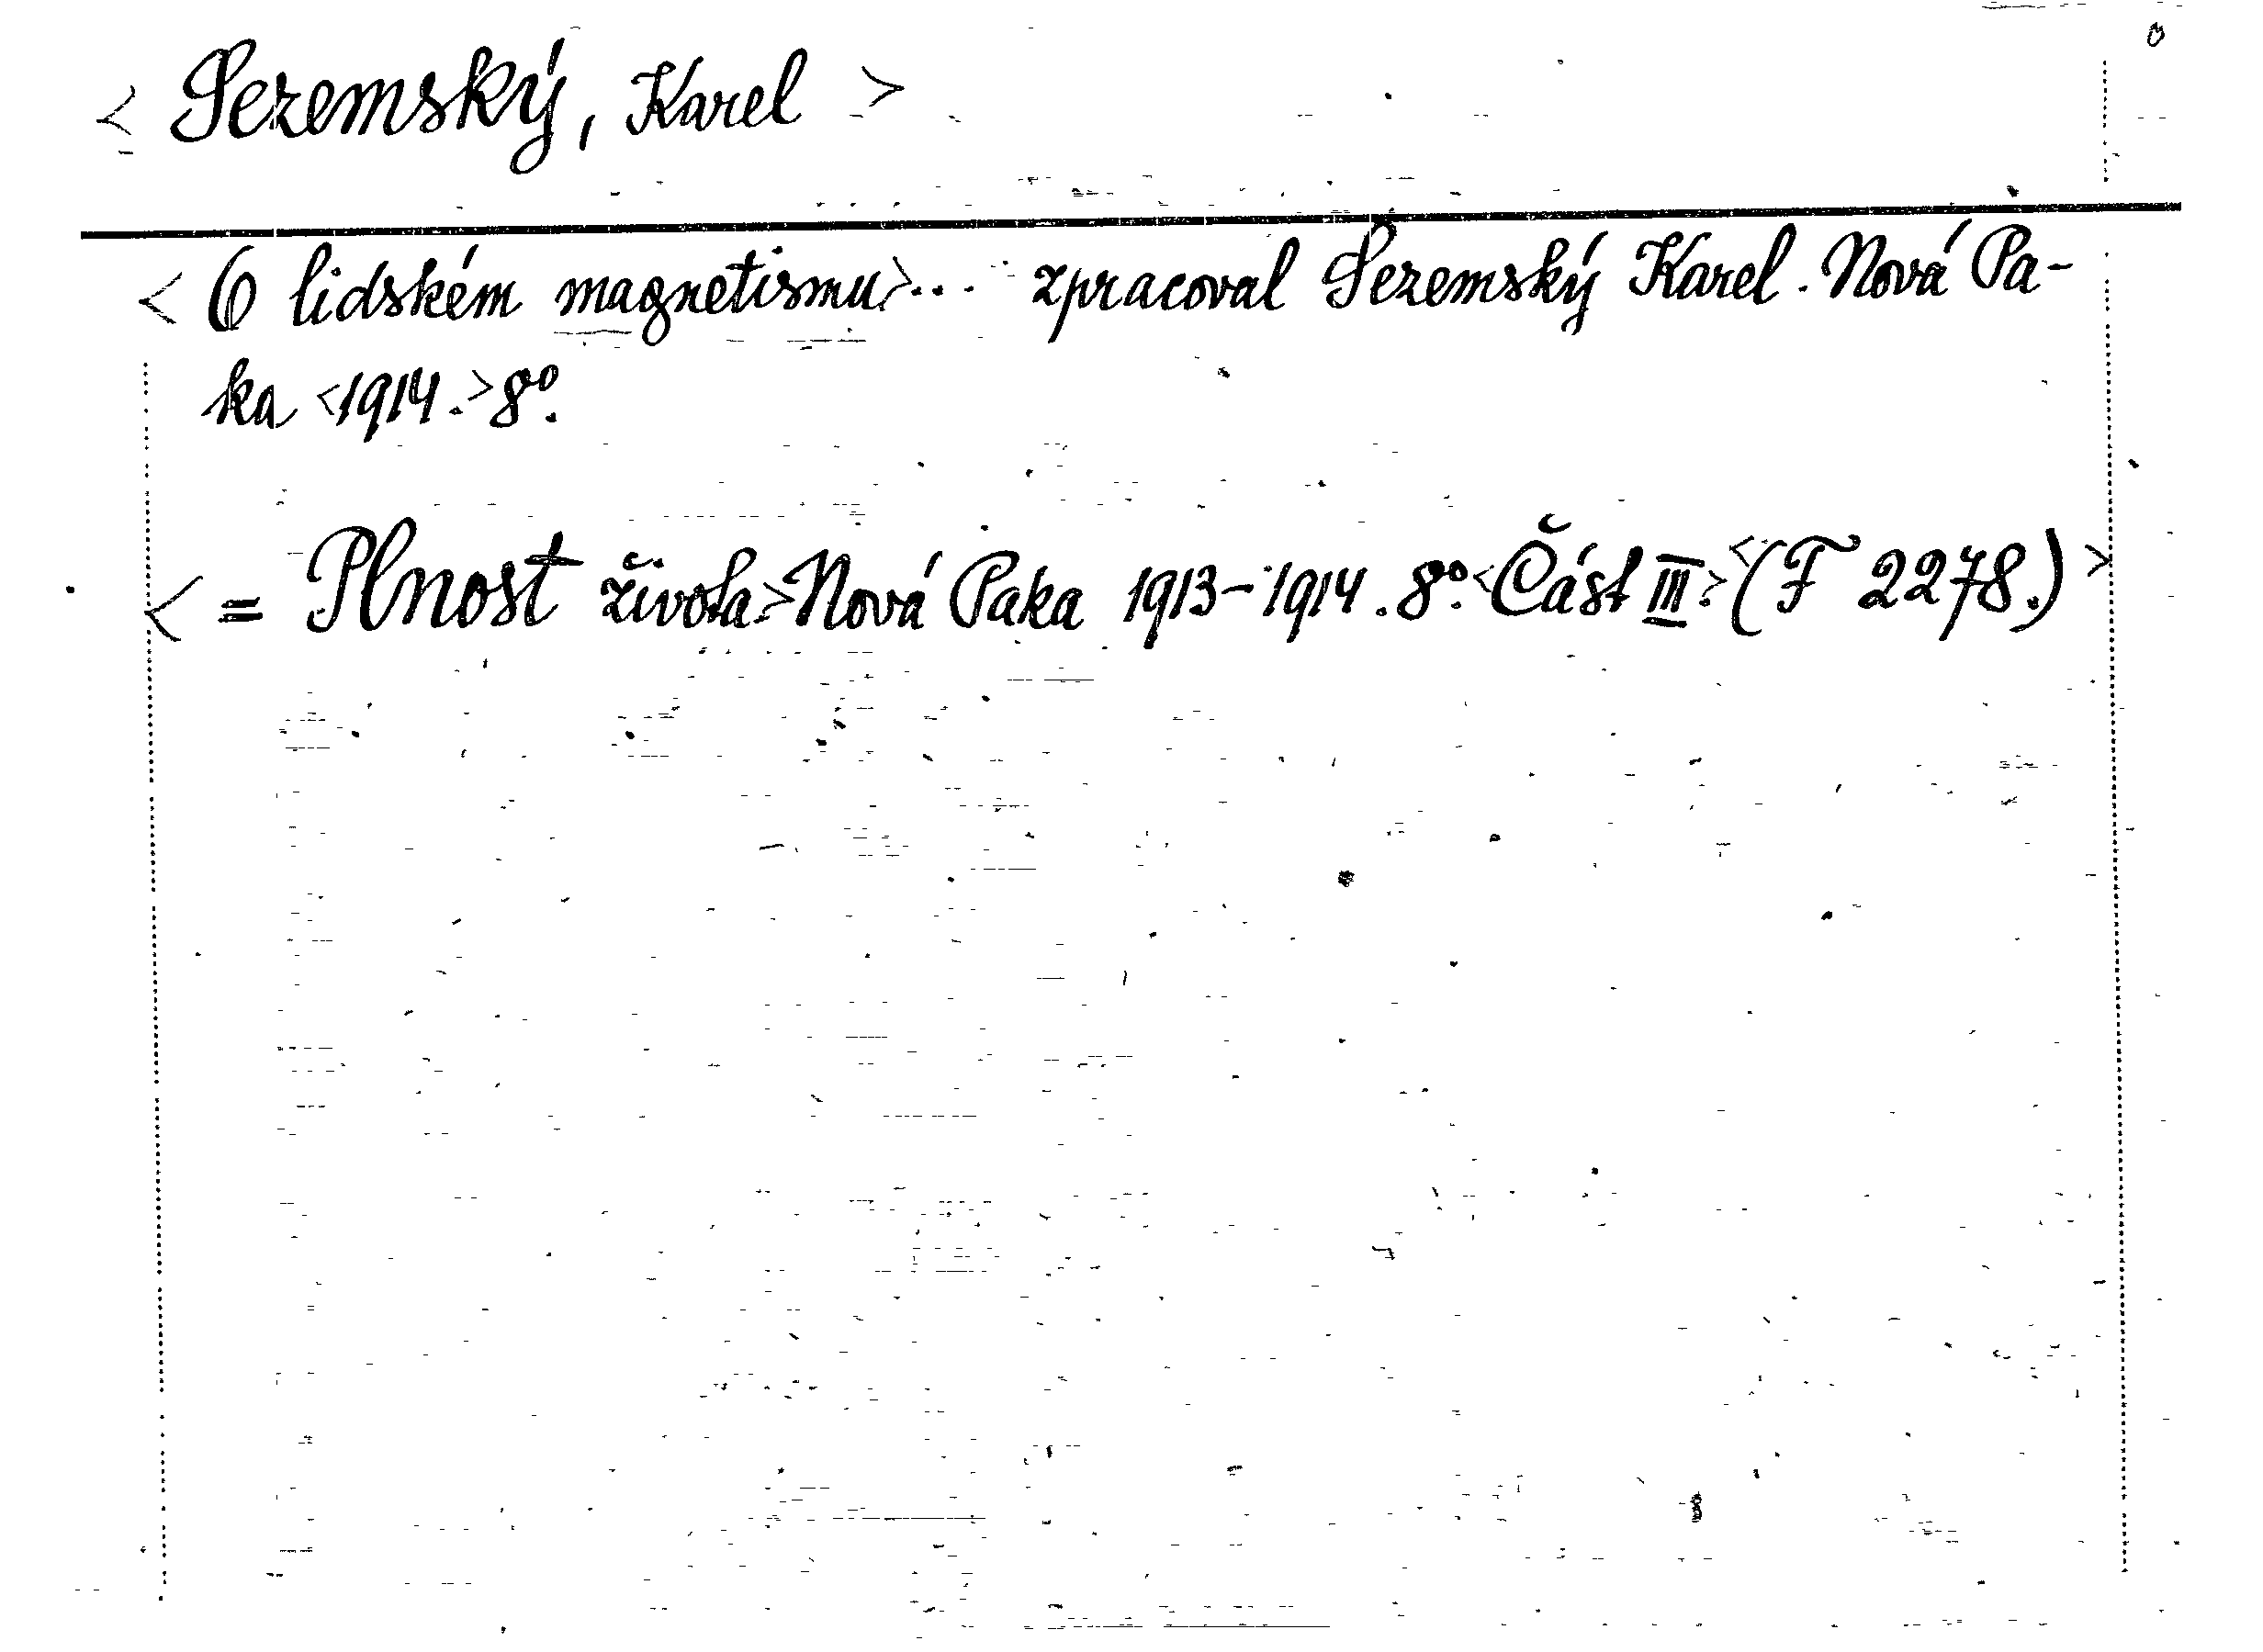 < Sezemský, Karel >
< O lidském magnetismu>... zpracoval Sezemský Karel. Nová Pa-
ka <1914.> 8º.
< = Plnost života.> Nová Paka 1913-1914. 8º. <Část III.> <(F 2278.)>